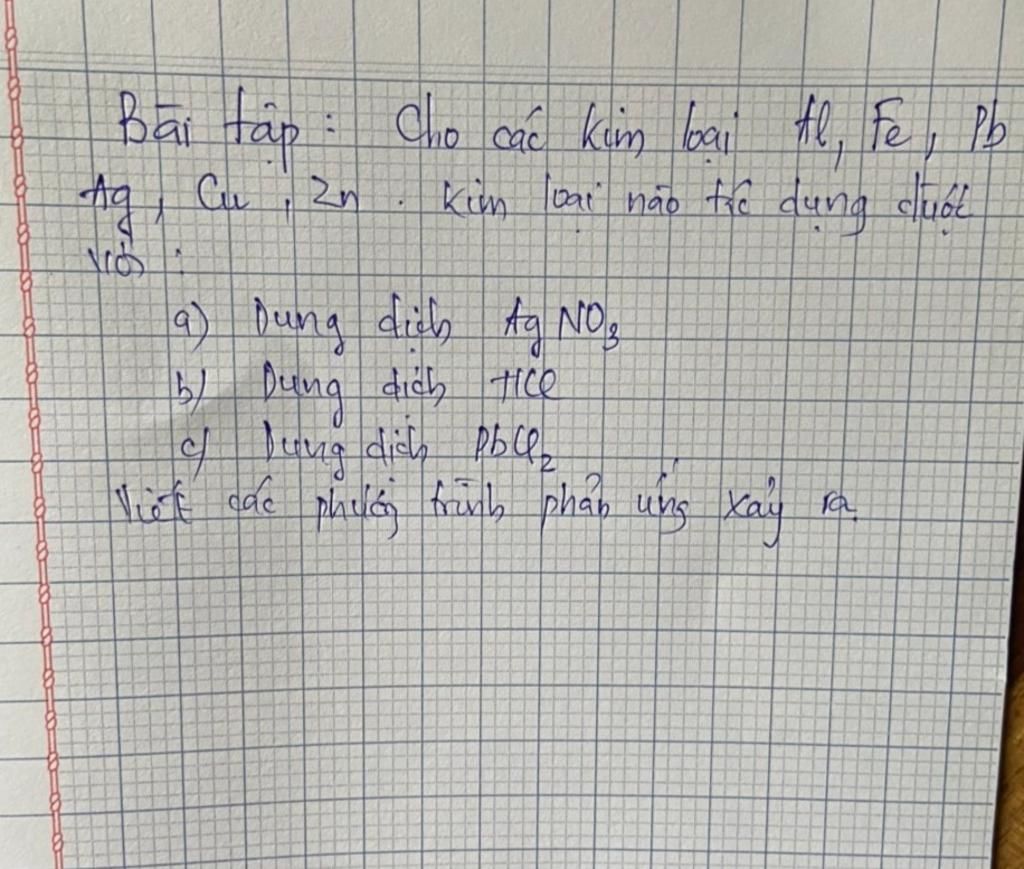 Bài tập : Cho các kim loại Al, Fe, Pb
Ag, Cu, Zn. Kim loại nào tác dụng được
với :
a) Dung dịch AgNO3
b) Dung dịch HCl
c) Dung dịch PbCl2
Viết các phương trình phản ứng xảy ra.